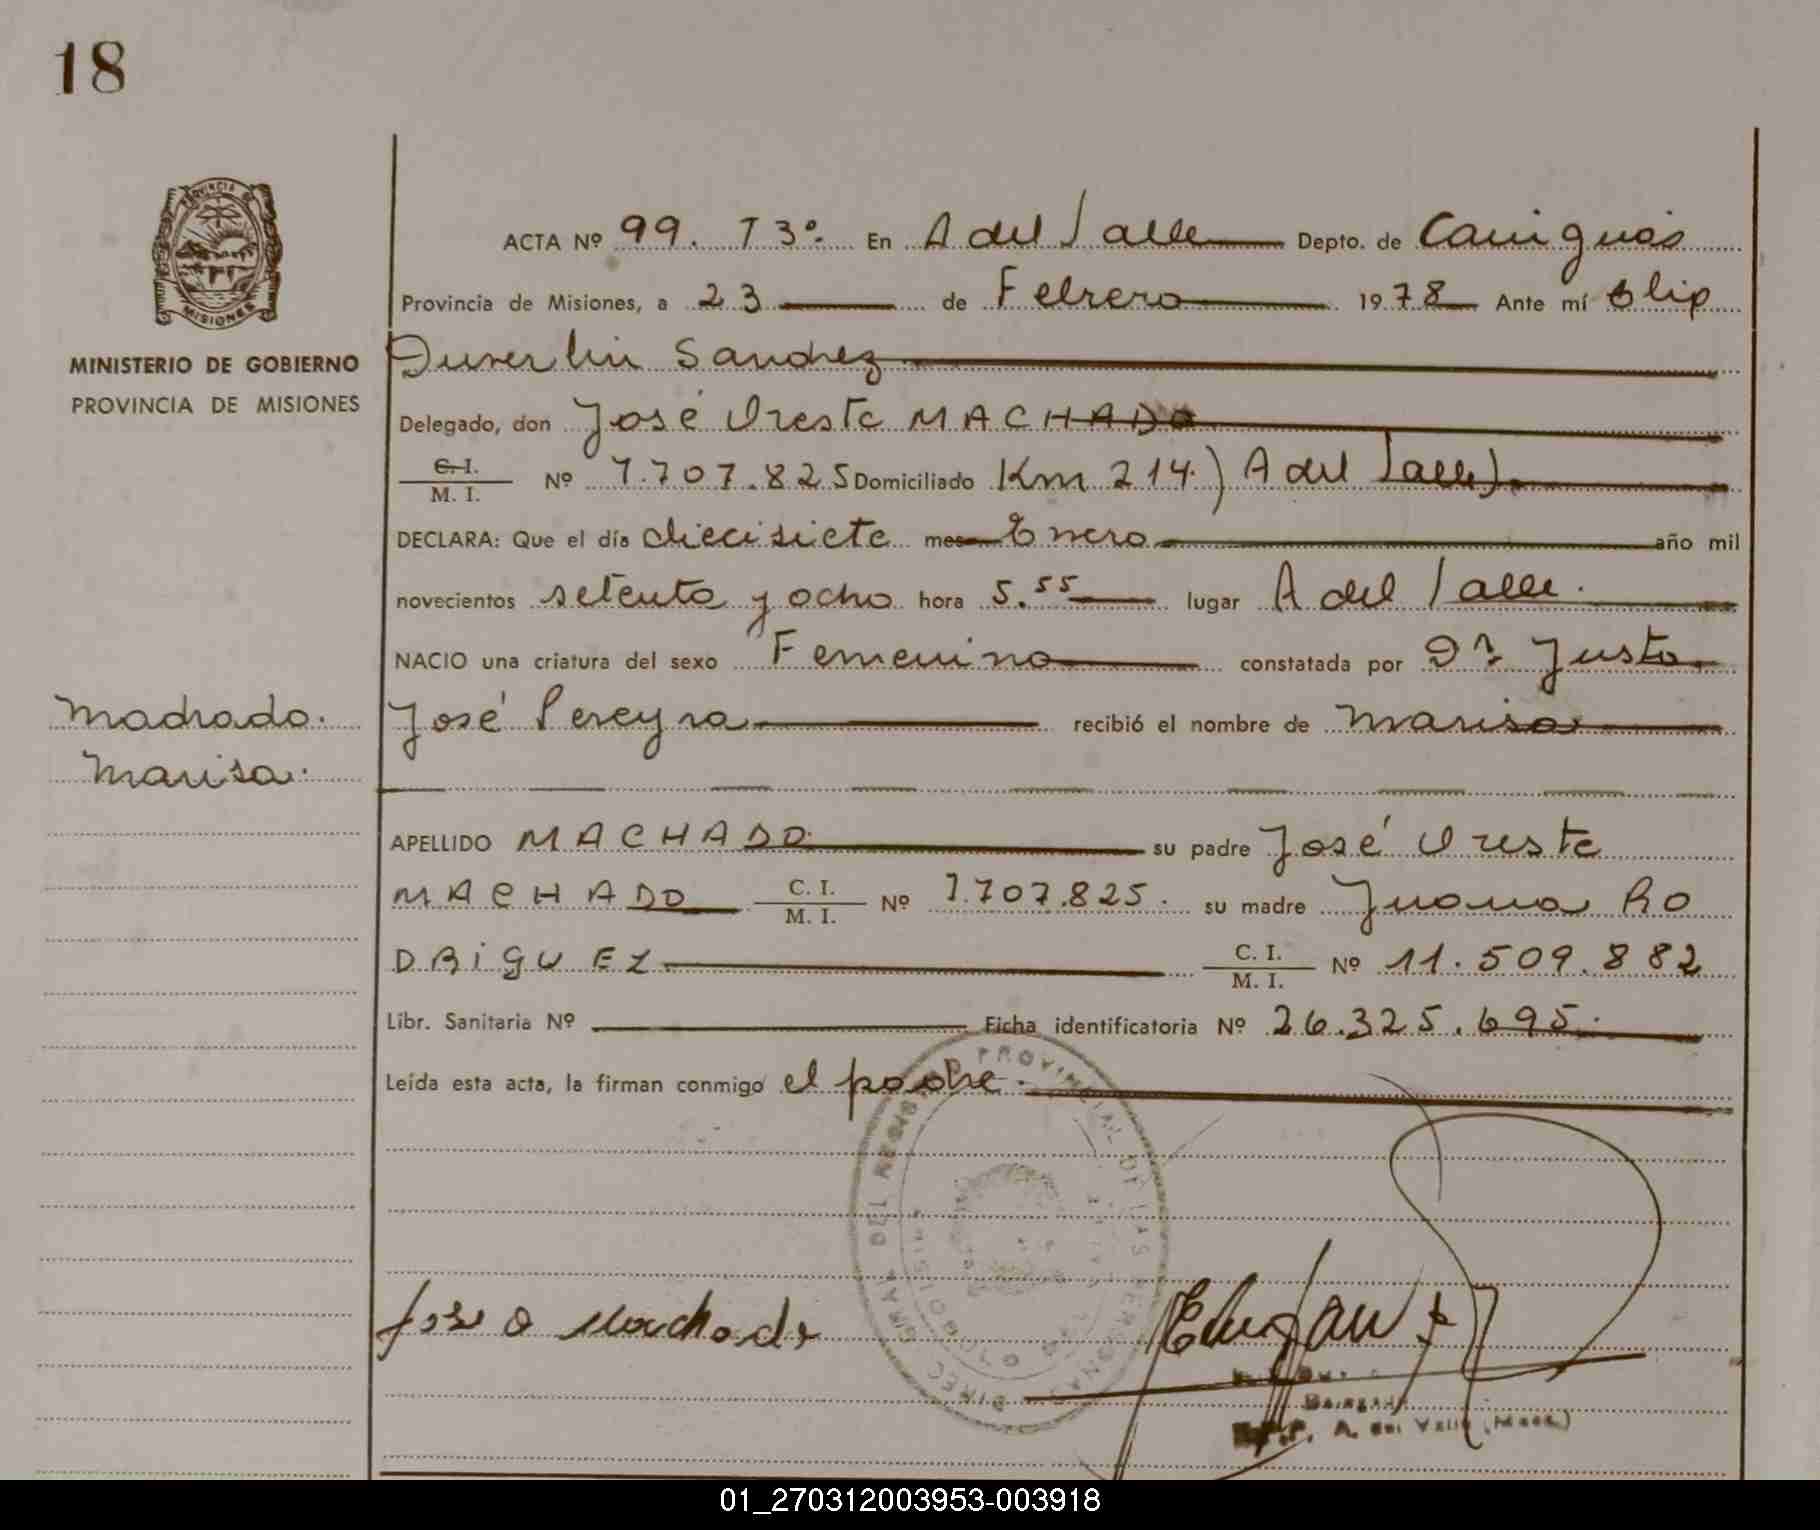 18
PROVINCIA DE
MISIONES
MINISTERIO DE GOBIERNO
PROVINCIA DE MISIONES
ACTA Nº 99. T3º. En A del Valle Depto. de Cainguás
Provincia de Misiones, a 23 de Febrero 1978 Ante mí
Sanchez
Delegado, don José Oreste MACHADO
C. I.
M. I. Nº 7.707.825 Domiciliado Km 214.) A del Valle).
DECLARA: Que el día diecisiete mes Enero año mil
novecientos setenta y ocho hora 5.55 lugar A del Valle.
NACIO una criatura del sexo Femenino constatada por Dr Justo
José Pereyra recibió el nombre de Marisa
Machado.
Marisa.
APELLIDO MACHADO su padre José Oreste
MACHADO C. I.
M. I. Nº 7.707.825. su madre Juana RO
DRIGUEZ C. I.
M. I. Nº 11.509.882
Libr. Sanitaria Nº Ficha identificatoria Nº 26.325.695.
Leída esta acta, la firman conmigo el padre.
PROVINCIAL DE LAS PERSONAS
Jose O Machado
A. del Valle (Mnes.)
01_270312003953-003918